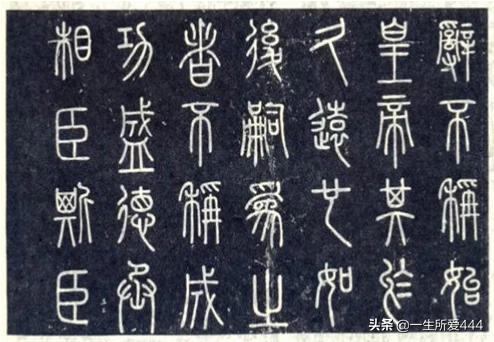 辭不稱始
皇帝其於
久遠也如
後嗣為之
者不稱成
功盛德丞
相臣斯臣
头条 @一生所爱444